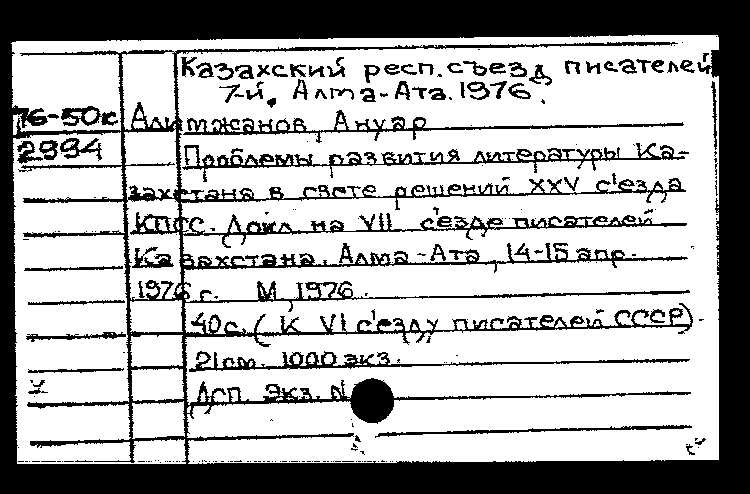 Казахский респ. съезд писателей
7-й. Алма-Ата. 1976.
76-50к Алимжанов, Ануар
2994 Проблемы развития литературы Ка-
захстана в свете решений XXV с'езда
КПСС. Докл. на VII с'езде писателей
Казахстана. Алма-Ата, 14-15 апр.
1976 г. М., 1976.
40с. (К VI с'езду писателей СССР).
21см. 1000 экз.
Дсп. Экз. N